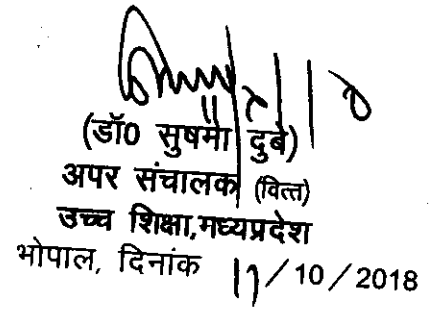 (डॉ0 सुषमा दुबे)
अपर संचालक (वित्त)
उच्च शिक्षा,मध्यप्रदेश
भोपाल, दिनांक 17/10/2018